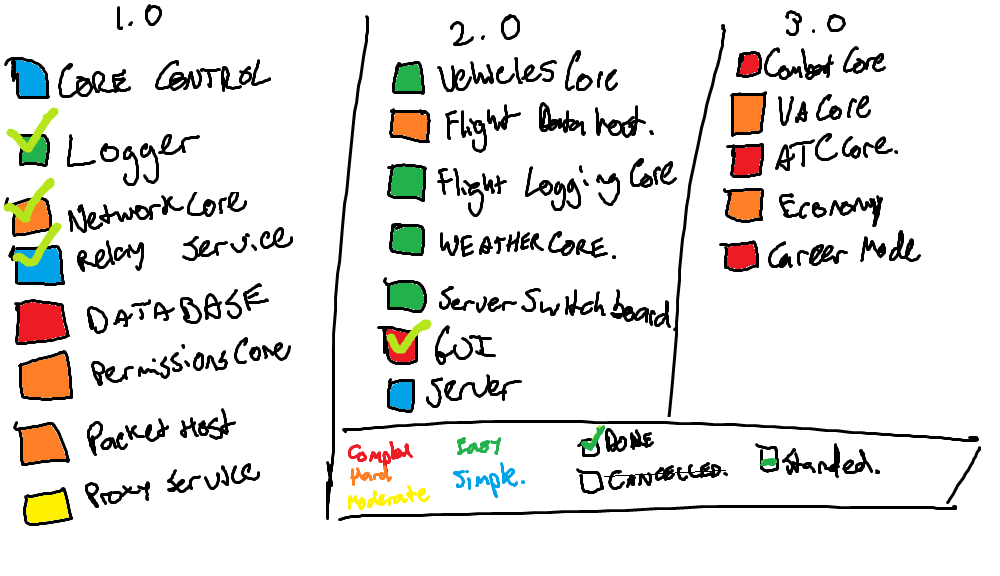 1.0
CORE CONTROL
Logger
Network Core
Relay Service
DATABASE
Permissions Core
Packet Host
Proxy Service
2.0
Vehicles Core
Flight Data host.
Flight Logging Core
WEATHER CORE.
Server Switchboard.
GUI
Server
3.0
Combat Core
VA Core
ATC Core.
Economy
Career Mode
Complex
Hard
Moderate
Easy
Simple.
DONE
CANCELLED.